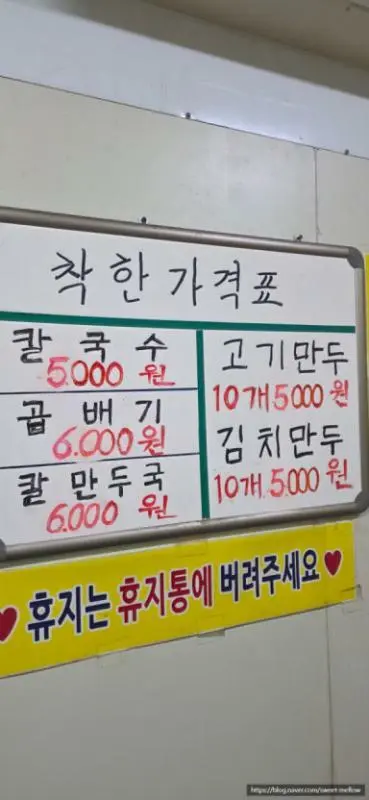 착한가격표
칼국수
5.000원
곱배기
6.000원
칼만두국
6.000원
고기만두
10개5000원
김치만두
10개.5.000원
♥휴지는 휴지통에 버려주세요♥
https://blog.naver.com/sweet-mellow